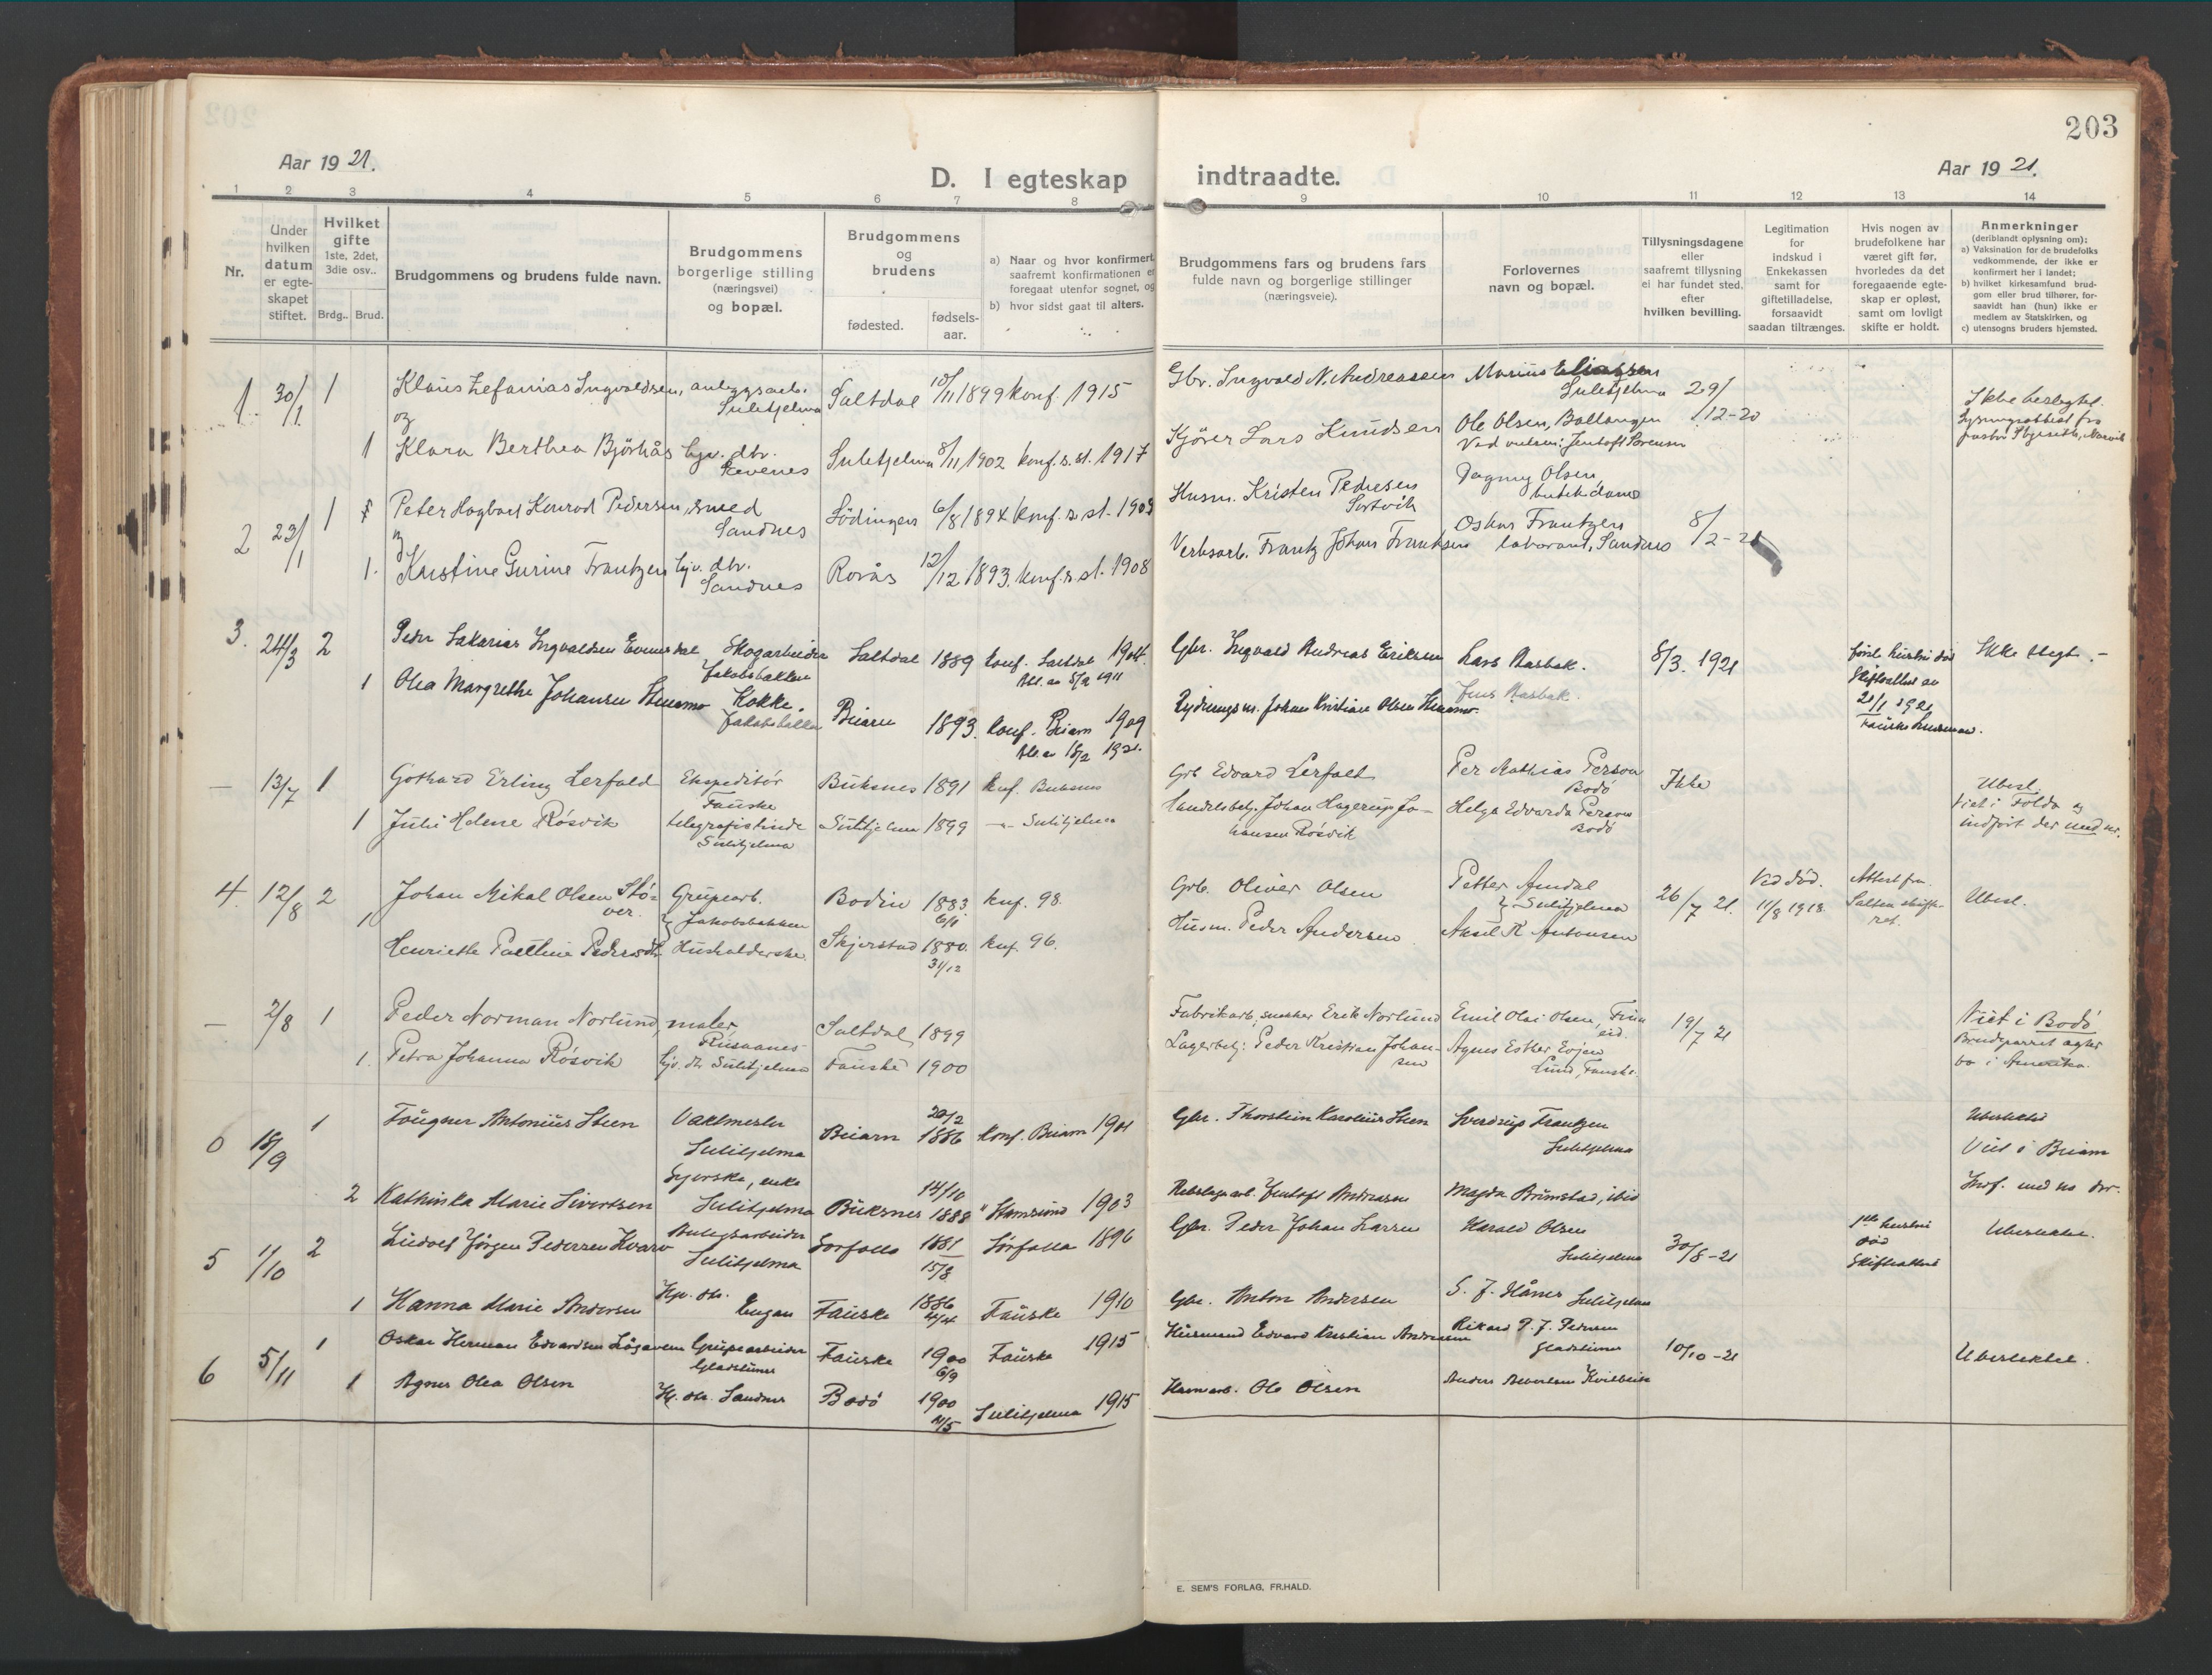 203
Aar 19 21.
D. I egteskap indtraadte.
Aar 19 21.
1 2 3 4 5 6 7 8 9 10 11 12 13 14
Nr.
Under hvilken datum er egte-skapet stiftet.
Hvilket gifte 1ste, 2det, 3die osv..
Brdg.. Brud.
Brudgommens og brudens fulde navn.
Brudgommens borgerlige stilling (næringsvei) og bopæl.
Brudgommens og brudens
fødested. fødsels-aar.
a) Naar og hvor konfirmert, saafremt konfirmationen er foregaat utenfor sognet, og
b) hvor sidst gaat til alters.
Brudgommens fars og brudens fars fulde navn og borgerlige stillinger (næringsveie).
Forlovernes navn og bopæl.
Tillysningsdagene eller saafremt tillysning ei har fundet sted, efter hvilken bevilling.
Legitimation for indskud i Enkekassen samt for giftetilladelse, forsaavidt saadan tiltrænges.
Hvis nogen av brudefolkene har været gift før, hvorledes da det foregaaende egte-skap er opløst, samt om lovligt skifte er holdt.
Anmerkninger (deriblandt oplysning om):
a) Vaksination før de brudefolks vedkommende, der ikke er konfirmert her i landet;
b) hvilket kirkesamfund brud-gom eller brud tilhører, for-saavidt han (hun) ikke er medlem av Statskirken, og
c) utensogns bruders hjemsted.
1. 30/1. 1 Klaus Zefanias Ingvaldsen, anlægsarb. Sulitjelma Saltdal 10/11 1899 konf. 1915 Gbr. Ingvald N. Andreassen Marius Eliassen Sulitjelma 29/12-20 Ikke beslegtet.
og
1 Klara Berthea Bjørhås hjv. dtr. Sulitjelma 8/11 1902 konf. s. st. 1917 Kjører Lars Knudsen Ole Olsen, Ballangen
2 23/1 1 Peter Hagbart Konrad Pedersen, smed Sandnes Lödingen 6/8 1894 konf. s. st. 1909 Husm. Kristen Pedersen Dagny Olsen butikdame
og
1. Kristine Gurine Frantzen hjv. dtr. Sandnes Rovås 12/12 1893. konf. s. st. 1908 Verksarb. Frantz Johan Frantzen Oskar Frantzen laborant, Sandnes 8/2-21
3. 24/3 2 Peder Sakarias Ingvaldsen Evensdal Skogarbeider Jakobsbakken Saltdal 1889 Konf. Saltdal 1904. Gbr. Ingvald Andreas Eriksen Lars Aasbak. 8/3. 1921 første hustru død Skifteattest av 21/1 1921 Ikke slegt.-
1 Olea Margrethe Johansen Kokke. Jakobsbakken Beiarn 1893. Konf. Beiarn 1909 Rydningsm. Johan Kristian Olsen Jens Aasbak.
— 13/7 1 Gothard Erling Lerfald Ekspeditør Fauske Buksnes 1891 Knf. Buksnes Grb Edvard Lerfalt Per Mathias Person Bodö Ikke Ubesl. Viet i Folda og indført der med nr.
1 Juli Helene Røsvik telegrafistinde Sulitjelma Sulitjelma 1899 -"- Sulitjelma Handelsbetj. Johan Hagerup Jo-hansen Røsvik Helga Edvarda Person Bodö
4. 12/8 2 Johan Mikal Olsen Stö-ver. Grupearb. Jakobsbakken Bodin 1883 6/1 knf. 98. Grb. Oliver Olsen Petter Amdal Sulitjelma 26/7 21. Ved död. 11/8 1918. Attest fra Salten skifte-ret. Ubesl.
1 Henriette Paulline Pedersdt. Husholderske. Skjerstad 1880. 31/12 knf. 96. Husm. Peder Andersen Aksel R Antonsen
— 2/8 1 Peder Norman Norlund, maler, Saltdal 1899 Fabrikarb, snekker Erik Norlund Emil Olai Olsen, 19/7 21 Viet i Bodö Brudparret agter bo i Amerika.
1. Petra Johanna Røsvik hjv. dtr Sulitjelma Fauske 1900 Lagerbetj: Peder Kristian Johan-sen Agnes Esther Evjen Lund, Fauske.
0 18/9 1 Fougner Antonius Steen Vaktmester Sulitjelma Beiarn 20/2 1886 Konf. Beiarn 1901 Gbr. Thorstein Karolius Steen Sverdrup Frantzen Sulitjelma Ubeslektet Viet i Beiarn
2 Kathinka Marie Sivertsen Syerske, enke Sulitjelma Buksnes 14/10 1888 " Stamsund 1903 Andreassen Magda Brimstad, ibid
5 1/10 2 Ludolf Jørgen Pedersen Kvarv Anlegsarbeider Sulitjelma Sorfolla 1881 15/8 Sørfolla 1896 Gbr. Peder Johan Larsen Harald Olsen Sulitjelma 30/8-21 1ste hustru død Skifteattest Ubeslektet.
1 Hanna Marie Andersen Hjv. dtr. Engan Fauske 1886 Fauske 1910 Gbr. Anton Andersen Sulitjelma
6 5/11 1 Oskar Herman Edvardsen Grupearbeider Fauske 1900 6/9 Fauske 1915 Husmand Edvard Kristian Andreassen Rikard P. J. Pedersen 10/10-21 Ubeslektet.
1 Agnes Olea Olsen Hj. dtr. Sandnes Bodö 1900 Sulitjelma 1915 Ole Olsen
E. SEM'S FORLAG, FR.HALD.